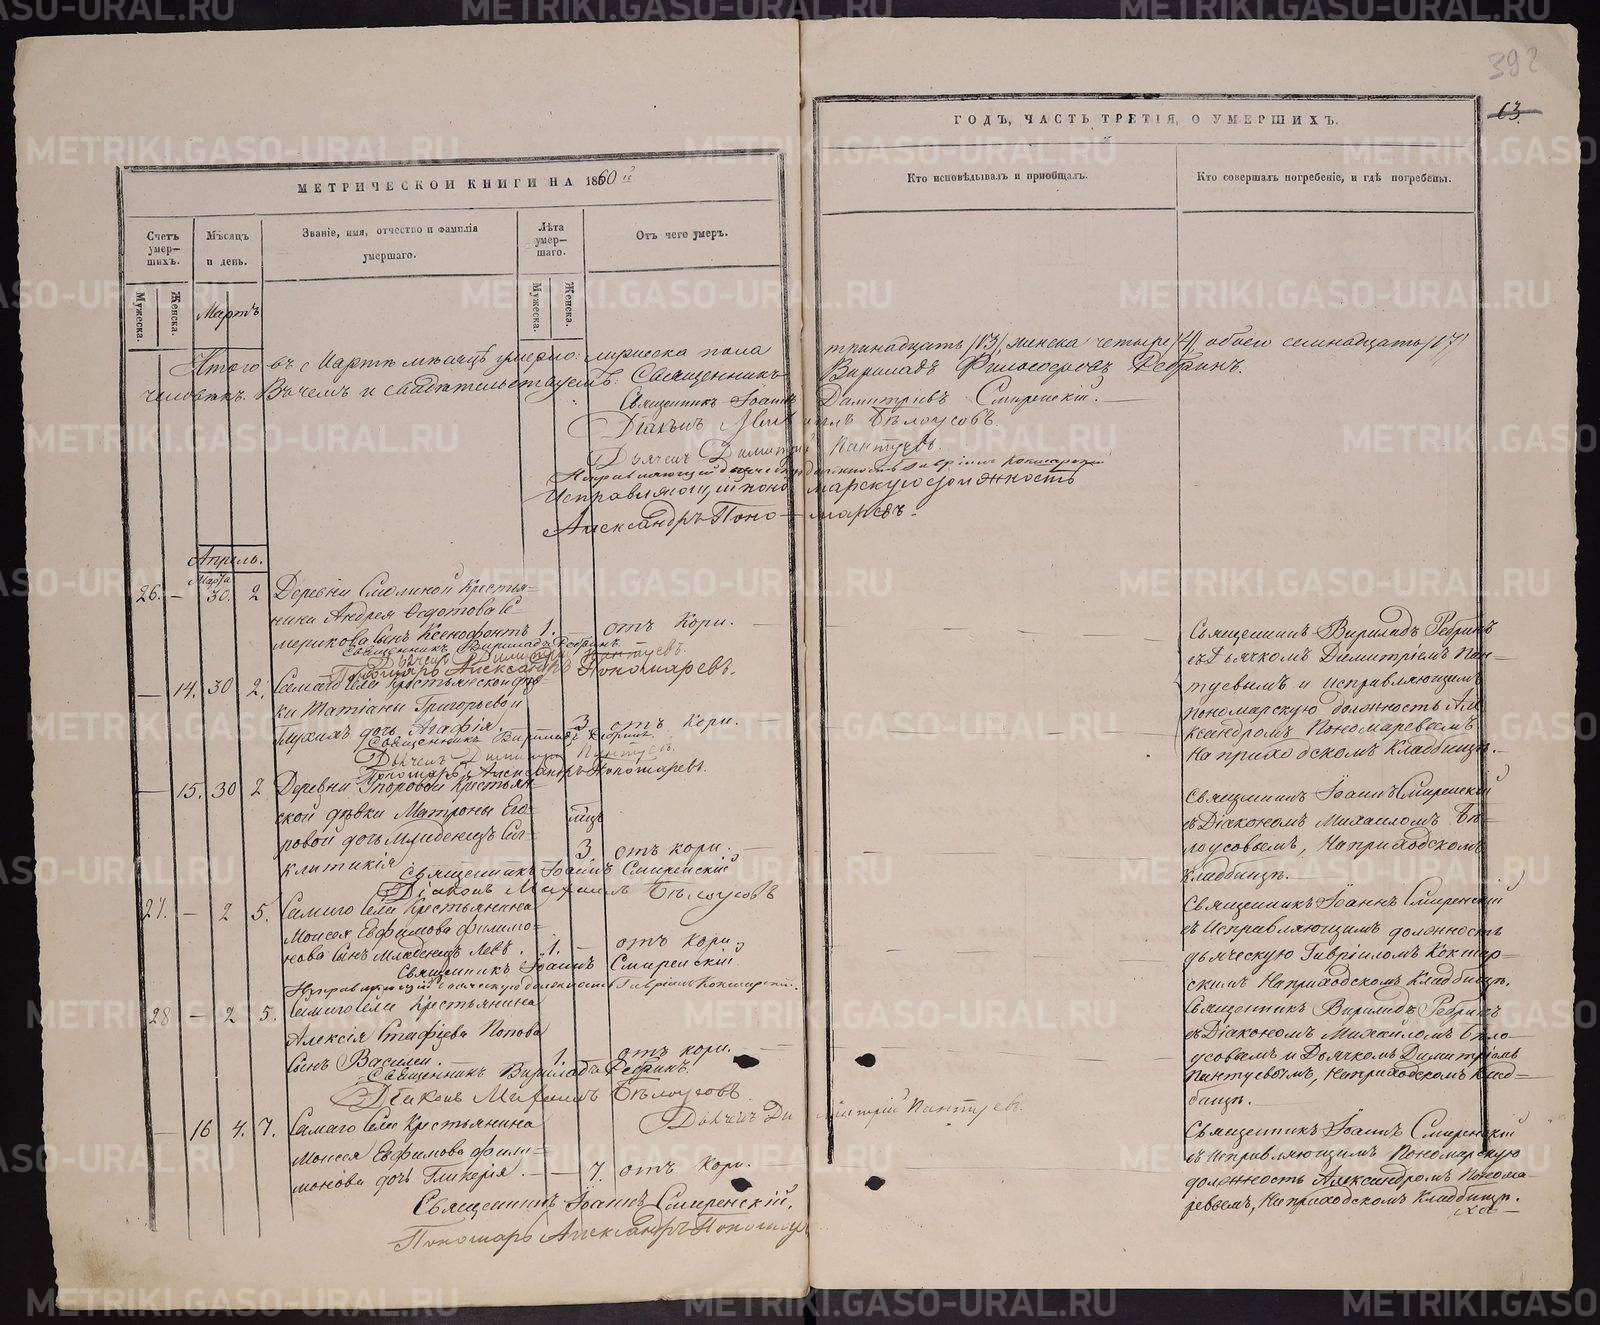 392
63.
МЕТРИЧЕСКОЙ КНИГИ НА 1860й
ГОДЪ, ЧАСТЬ ТРЕТІЯ, О УМЕРШИХЪ.
Счетъ умер-шихъ.
Мужеска.
Женска.
Мѣсяцъ и день.
Званіе, имя, отчество и фамилія умершаго.
Лѣта умер-шаго.
Мужеска.
Женска.
Отъ чего умеръ.
Кто исповѣдывалъ и пріобщалъ.
Кто совершалъ погребеніе, и гдѣ погребены.
Мартъ
Итого въ Мартѣ мѣсяцѣ умерло: мужеска пола тринадцать /13/, женска четыре /4/, обоего семнадцать /17/
человѣкъ. Въ чемъ и свидѣтельствуемъ: Священникъ Вириладъ Философовъ Ребринъ.
Священникъ Іоаннъ Димитріевъ Смиренскій.
Діаконъ Михаилъ Бѣлоусовъ.
Дьячекъ Димитрій Пантуевъ.
Исправляющій дьяческую должность Гавріилъ Кокшарскій
Исправляющій пономарскую должность
Александръ Пономаревъ.
Апрѣль.
Марта
26. — 30. 2 Деревни Смолиной Крестья-
нина Андрея Федотова Се-
мерикова сынъ Ксенофонтъ 1. отъ Кори.
Священникъ Вириладъ Ребринъ.
Дьячекъ Димитрій Пантуевъ.
Пономарь Александръ Пономаревъ.
Священникъ Вириладъ Ребринъ
съ Дьячкомъ Димитріемъ Пан-
туевымъ и исправляющимъ
Пономарскую должность Але-
ксандромъ Пономаревымъ
На приходскомъ Кладбищѣ.
— 14. 30 2. Самаго Села Крестьянской дѣв-
ки Татіаны Григорьевой
дочь Агафія. 3 отъ Кори.
Священникъ Вириладъ Ребринъ.
Дьячекъ Димитрій Пантуевъ.
Пономарь Александръ Пономаревъ.
— 15. 30 2 Деревни Крестьян-
ской дѣвки Матроны Его-
ровой дочь Младенецъ Син-
клитикія 3 мцъ отъ кори.
Священникъ Іоаннъ Смиренскій
Діаконъ Михаилъ Бѣлоусовъ
Священникъ Іоаннъ Смиренскій
съ Діакономъ Михаиломъ Бѣ-
лоусовымъ, На приходскомъ
Кладбищѣ.
27. — 2 5. Самаго Села Крестьянина
Моисея Евфимова Филимо-
нова сынъ Младенецъ Левъ. 1. — отъ Кори.
Священникъ Іоаннъ Смиренскій
Исправляющій дьяческую должность Гавріилъ Кокшарскій.
Священникъ Іоаннъ Смиренскій
съ Исправляющимъ должность
дьяческую Гавріиломъ Кокшар-
скимъ На приходскомъ Кладбищѣ.
28 — 2 5. Самаго Села Крестьянина
Алексія Попова
сынъ Василій. 1. отъ кори.
Священникъ Вириладъ Ребринъ.
Діаконъ Михаилъ Бѣлоусовъ
Дьячекъ Димитрій Пантуевъ.
Священникъ Вириладъ Ребринъ
съ Діакономъ Михаиломъ Бѣло-
усовымъ и Дьячкомъ Димитріемъ
Пантуевымъ, На приходскомъ Клад-
бищѣ.
— 16 4. 7. Самаго Села Крестьянина
Моисея Евфимова Фили-
монова дочь Гликерія. — 7. отъ Кори.
Священникъ Іоаннъ Смиренскій.
Пономарь Александръ
Священникъ Іоаннъ Смиренскій
съ Исправляющимъ Пономарскую
должность Александромъ Понома-
ревымъ, На приходскомъ Кладбищѣ.
METRIKI.GASO-URAL.RU